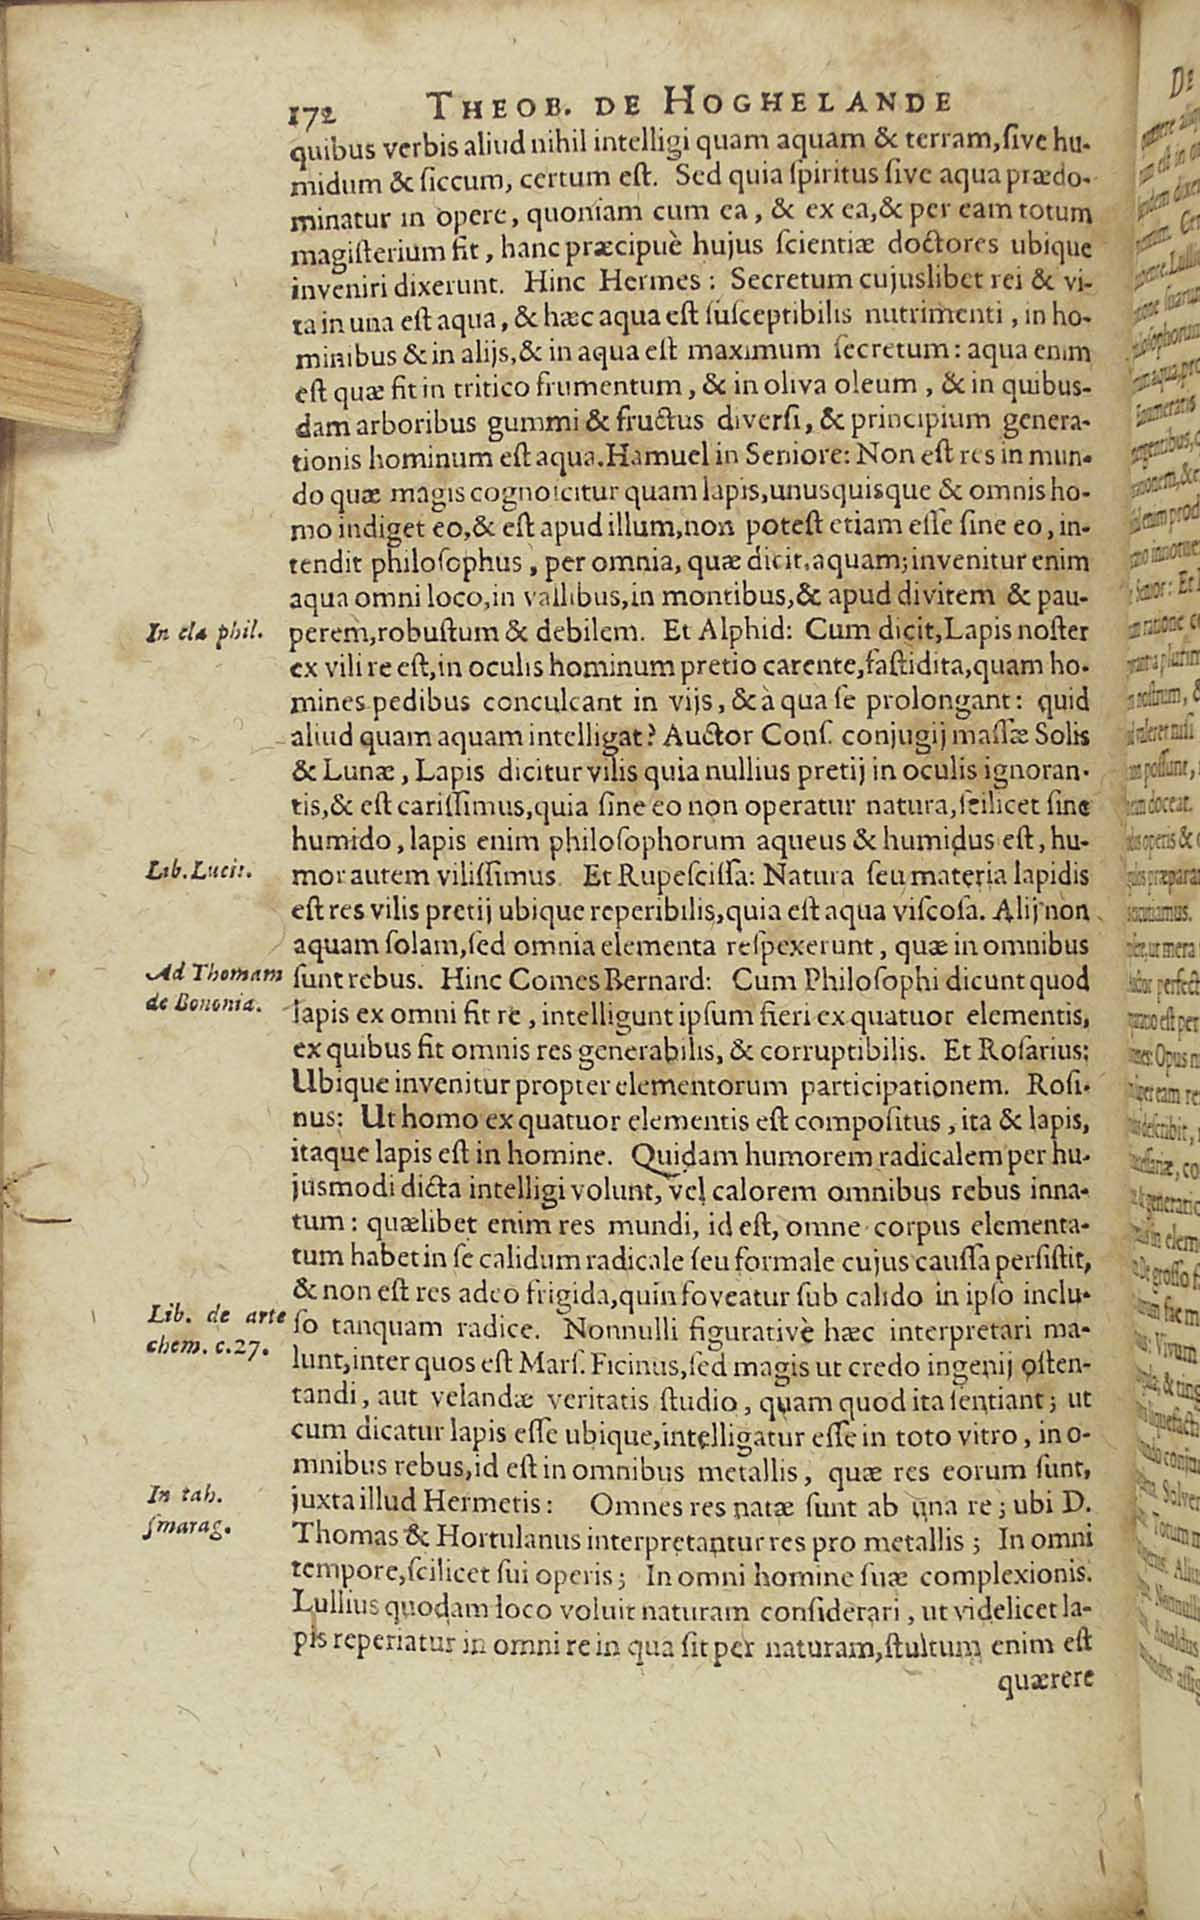 172 THEOB. DE HOGHELANDE
quibus verbis aliud nihil intelligi quam aquam & terram, ſive hu-
midum & ſiccum, certum eſt. Sed quia ſpiritus ſive aqua prædo-
minatur in opere, quoniam cum ea, & ex ea, & per eam totum
magiſterium fit, hanc præcipuè hujus ſcientiæ doctores ubique
inveniri dixerunt. Hinc Hermes: Secretum cujuslibet rei & vi-
ta in una eſt aqua, & hæc aqua eſt ſuſceptibilis nutrimenti, in ho-
minibus & in alijs, & in aqua eſt maximum ſecretum: aqua enim
eſt quæ fit in tritico frumentum, & in oliva oleum, & in quibus-
dam arboribus gummi & fructus diverſi, & principium genera-
tionis hominum eſt aqua. Hamuel in Seniore: Non eſt res in mun-
do quæ magis cognoicitur quam lapis, unusquisque & omnis ho-
mo indiget eo, & eſt apud illum, non poteſt etiam eſſe ſine eo, in-
tendit philoſophus, per omnia, quæ dicit, aquam; invenitur enim
aqua omni loco, in vallibus, in montibus, & apud divitem & pau-
In cla phil. perem, robuſtum & debilem. Et Alphid: Cum dicit, Lapis noſter
ex vili re eſt, in oculis hominum pretio carente, faſtidita, quam ho-
mines pedibus conculcant in vijs, & à qua ſe prolongant: quid
aliud quam aquam intelligat? Auctor Conſ. conjugij maſſæ Solis
& Lunæ, Lapis dicitur vilis quia nullius pretij in oculis ignoran-
tis, & eſt cariſſimus, quia ſine eo non operatur natura, ſcilicet ſine
humido, lapis enim philoſophorum aqueus & humidus eſt, hu-
Lib. Lucis. mor autem viliſſimus. Et Rupeſciſſa: Natura ſeu materia lapidis
eſt res vilis pretij ubique reperibilis, quia eſt aqua viſcoſa. Alij non
aquam ſolam, ſed omnia elementa reſpexerunt, quæ in omnibus
Ad Thomam ſunt rebus. Hinc Comes Bernard: Cum Philoſophi dicunt quod
de Bononia. lapis ex omni fit re, intelligunt ipſum fieri ex quatuor elementis,
ex quibus fit omnis res generabilis, & corruptibilis. Et Roſarius:
Ubique invenitur propter elementorum participationem. Roſi-
nus: Ut homo ex quatuor elementis eſt compoſitus, ita & lapis,
itaque lapis eſt in homine. Quidam humorem radicalem per hu-
jusmodi dicta intelligi volunt, vel calorem omnibus rebus inna-
tum: quælibet enim res mundi, id eſt, omne corpus elementa-
tum habet in ſe calidum radicale ſeu formale cujus cauſſa perſiſtit,
& non eſt res adeo frigida, quin foveatur ſub calido in ipſo inclu-
Lib. de arte ſo tanquam radice. Nonnulli figurativè hæc interpretari ma-
chem. c. 27. lunt, inter quos eſt Marſ. Ficinus, ſed magis ut credo ingenij oſten-
tandi, aut velandæ veritatis ſtudio, quam quod ita ſentiant; ut
cum dicatur lapis eſſe ubique, intelligatur eſſe in toto vitro, in o-
mnibus rebus, id eſt in omnibus metallis, quæ res eorum ſunt,
In tab. juxta illud Hermetis: Omnes res natæ ſunt ab una re; ubi D.
ſmarag. Thomas & Hortulanus interpretantur res pro metallis; In omni
tempore, ſcilicet ſui operis; In omni homine ſuæ complexionis.
Lullius quodam loco voluit naturam conſiderari, ut videlicet la-
pis reperiatur in omni re in qua ſit per naturam, ſtultum enim eſt
quærere